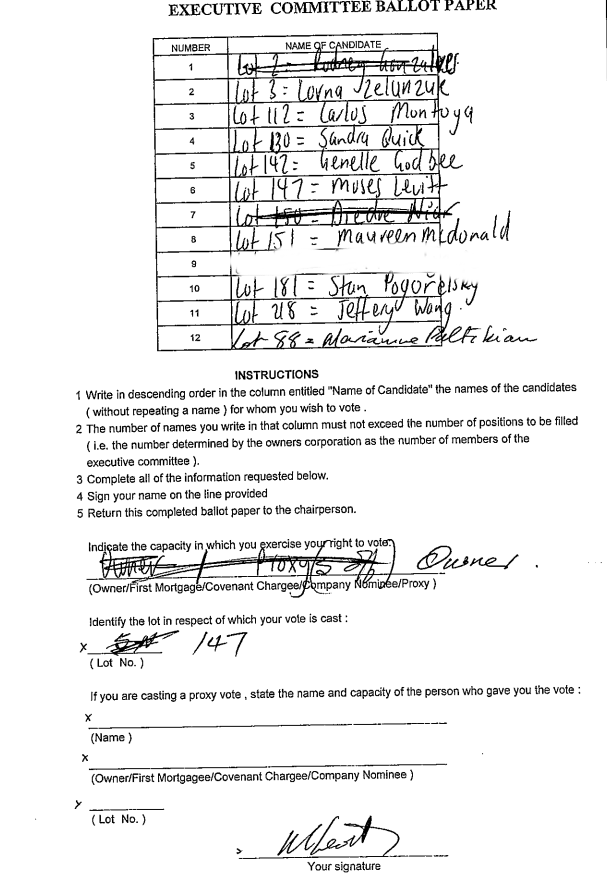 EXECUTIVE COMMITTEE BALLOT PAPER
NUMBER NAME OF CANDIDATE
1 Lot 2 = Rodney Gonzalves
2 Lot 3 = Lorna Zelunzuk
3 Lot 112 = Carlos Montoya
4 Lot 130 = Sandra Quick
5 Lot 142 = Genelle Godbee
6 Lot 147 = Moses Levitt
7 Lot 150 =
8 Lot 151 = Maureen McDonald
9
10 Lot 181 = Stan Pogorelsky
11 Lot 218 = Jeffery Wong
12 Lot 88 = Marianne
INSTRUCTIONS
1 Write in descending order in the column entitled "Name of Candidate" the names of the candidates
( without repeating a name ) for whom you wish to vote .
2 The number of names you write in that column must not exceed the number of positions to be filled
( i.e. the number determined by the owners corporation as the number of members of the
executive committee ).
3 Complete all of the information requested below.
4 Sign your name on the line provided
5 Return this completed ballot paper to the chairperson.
Indicate the capacity in which you exercise your right to vote:
Owner / Proxy Owner .
(Owner/First Mortgage/Covenant Chargee/Company Nominee/Proxy )
Identify the lot in respect of which your vote is cast :
x 147
( Lot No. )
If you are casting a proxy vote , state the name and capacity of the person who gave you the vote :
x
(Name )
x
(Owner/First Mortgagee/Covenant Chargee/Company Nominee )
x
( Lot No. )
>
Your signature